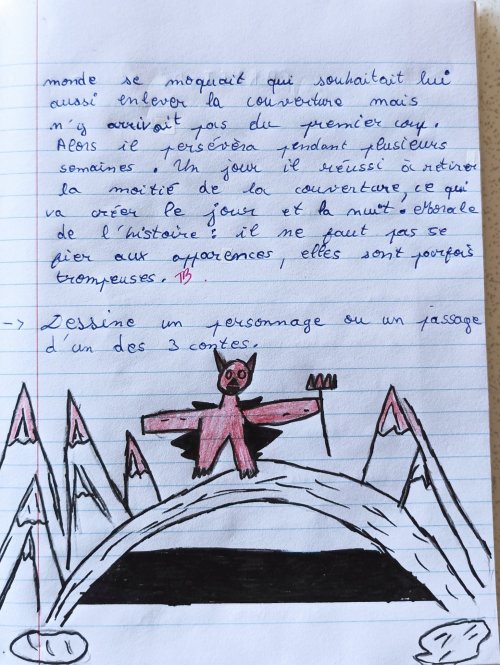 monde se moquait qui souhaitait lui
aussi enlever la couverture mais
n'y arrivait pas du premier coup.
Alors il persévéra pendant plusieurs
semaines. Un jour il réussi à retirer
la moitié de la couverture, ce qui
va créer le jour et la nuit. Morale
de l'histoire : il ne faut pas se
fier aux apparences, elles sont parfois
trompeuses. TB.
-> Dessine un personnage ou un passage
d'un des 3 contes.